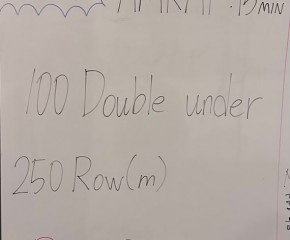 AMRAP . 15 MIN
100 Double under
250 Row(m)